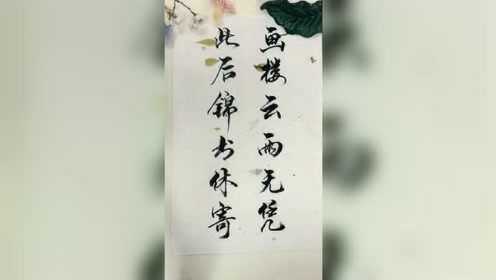 此后锦书休寄
画楼云雨无凭